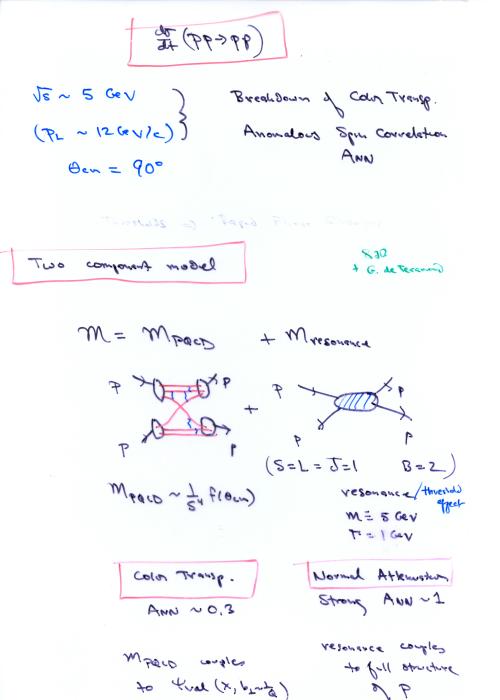 dσ/dt (pp→pp)
√s ~ 5 GeV
Breakdown of Color Transp.
(PL ~ 12 GeV/c)
Anomalous Spin Correlation
ANN
θcm = 90°
Two component model
SJB
+ G. de Teramond
M = MPQCD + Mresonance
P P P P
+
P P P P
(S=L=J=1 B=2)
MPQCD ~ 1/s⁴ f(θcm)
resonance/threshold
effect
M = 5 GeV
Γ = 1 GeV
Color Transp.
Normal Attenuation
ANN ~ 0.3
Strong ANN ~ 1
MPQCD couples
to Ψval (x, b⊥~1/Q)
resonance couples
to full structure
of P